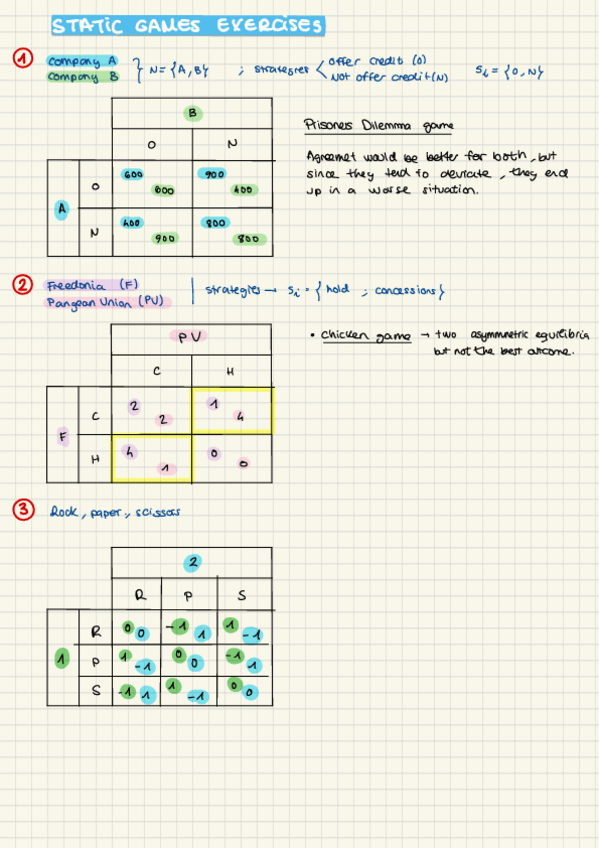 STATIC GAMES EXERCISES
1 Company A
Company B
} N = {A, B} ; strategies < offer credit (O)
Not offer credit (N)
Si = {O, N}
B
O N
A
O 600 600 900 400
N 400 900 800 800
Prisoners Dilemma game
Agreemet would be better for both, but
since they tend to deviate, they end
up in a worse situation.
2 Freedonia (F)
Pangean Union (PV)
| strategies → Si = {hold ; concessions}
PV
C H
F
C 2 2 1 4
H 4 1 0 0
• chicken game → two asymmetric equilibria
but not the best outcome.
3 Rock, paper, scissors
2
R P S
1
R 0 0 -1 1 1 -1
P 1 -1 0 0 -1 1
S -1 1 1 -1 0 0